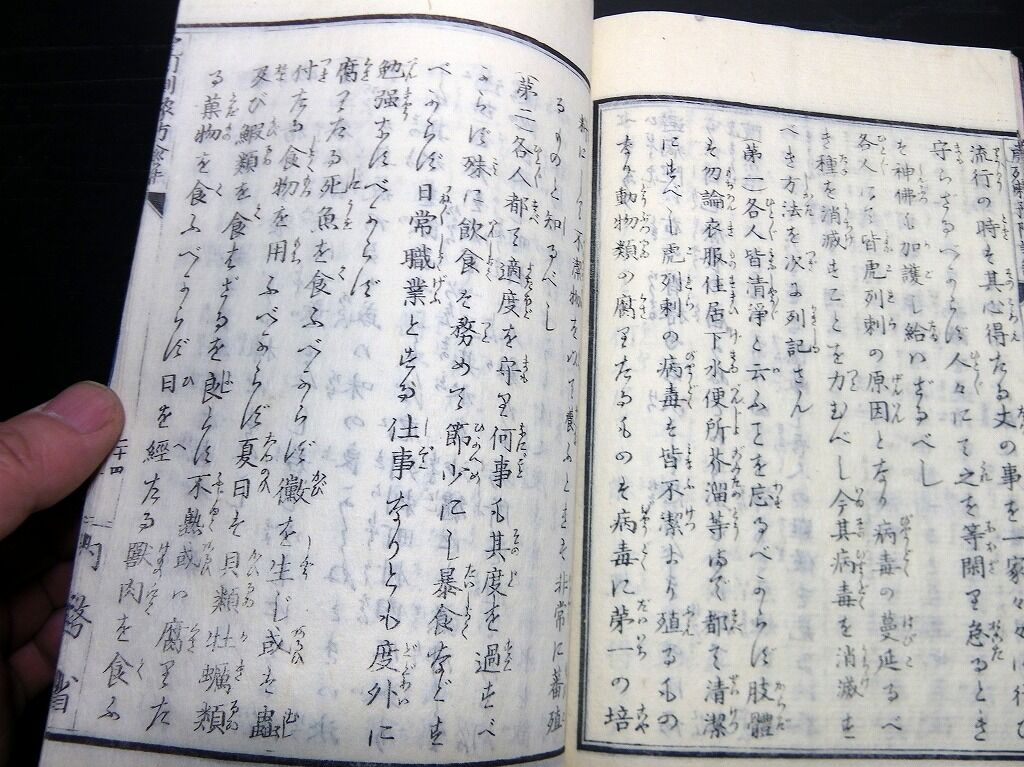 流行の時も其心得たる丈の事を一家々々に行ひ
を神佛も加護し給はざるべし
守らざるべからず人々にて之を等閑り怠るとき
各人にて皆虎列刺の原因となり病毒の蔓延るべ
き種を消滅すことを力むべし今其病毒を消滅す
べき方法を次に列記さん
(第一)各人皆清淨と云ふことを忘るべからず肢體
は勿論衣服住居下水便所芥溜等まで都て清潔
にすべし虎列刺の病毒は皆不潔より殖るもの
なり動物類の腐りたるものは病毒に第一の培
るものと知るべし
(第二)各人都て適度を守り何事も其度を過すべ
からず殊に飲食を務めて節少にし暴食などす
べからず日常職業とする仕事なりとも度外に
勉強なすべからず
腐りたる死魚を食ふべからず黴を生じ或は蟲
付たる食物を用ふべからず夏日は貝類牡蠣類
及び鰕類を食せざるを良とす不熟或は腐りた
る菓物を食ふべからず日を經たる獸肉を食ふ
二十四
内務省